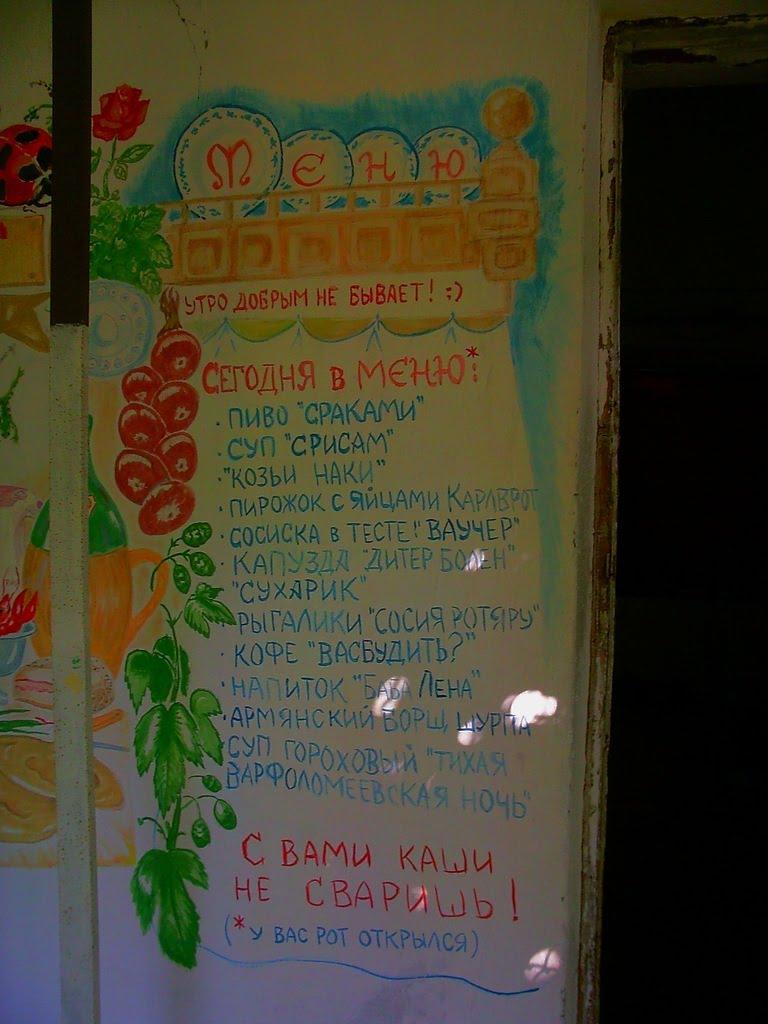 Меню
УТРО ДОБРЫМ НЕ БЫВАЕТ! ;)
СЕГОДНЯ В МЕНЮ*:
· ПИВО "СРАКАМИ"
· СУП "СРИСАМ"
· "КОЗЬИ НАКИ"
· ПИРОЖОК С ЯЙЦАМИ КАРЛВРОТ
· СОСИСКА В ТЕСТЕ "ВАУЧЕР"
· КАПУЗДА "ДИТЕР БОЛЕН"
· "СУХАРИК"
· РЫГАЛИКИ "СОСИЯ РОТЯРУ"
· КОФЕ "ВАСБУДИТЬ?"
· НАПИТОК "БАБА ЛЕНА"
· АРМЯНСКИЙ БОРЩ, ШУРПА
· СУП ГОРОХОВЫЙ "ТИХАЯ
ВАРФОЛОМЕЕВСКАЯ НОЧЬ"
С ВАМИ КАШИ
НЕ СВАРИШЬ!
(*У ВАС РОТ ОТКРЫЛСЯ)